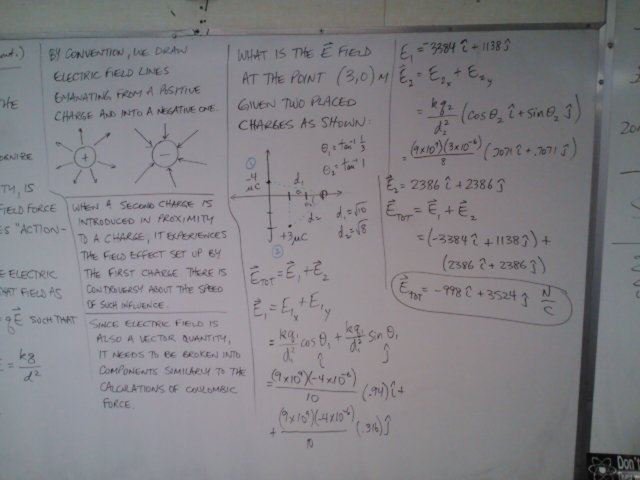 NT.)
THE
ORNIZE
TY, IS
FIELD FORCE
ES "ACTION-
E ELECTRIC
HAT FIELD AS
=qE⃗ SUCH THAT
E = kq/d²
BY CONVENTION, WE DRAW
ELECTRIC FIELD LINES
EMANATING FROM A POSITIVE
CHARGE AND INTO A NEGATIVE ONE.
+ −
WHEN A SECOND CHARGE IS
INTRODUCED IN PROXIMITY
TO A CHARGE, IT EXPERIENCES
THE FIELD EFFECT SET UP BY
THE FIRST CHARGE. THERE IS
CONTROVERSY ABOUT THE SPEED
OF SUCH INFLUENCE.
SINCE ELECTRIC FIELD IS
ALSO A VECTOR QUANTITY,
IT NEEDS TO BE BROKEN INTO
COMPONENTS SIMILARLY TO THE
CALCULATIONS OF COULOMBIC
FORCE.
WHAT IS THE E⃗ FIELD
AT THE POINT (3,0) M
GIVEN TWO PLACED
CHARGES AS SHOWN:
① θ₁ = tan⁻¹ 1/3
-4 μC d₁ θ₂ = tan⁻¹ 1
d₂ d₁ = √10
+3μC d₂ = √8
②
E⃗TOT = E⃗₁ + E⃗₂
E⃗₁ = E₁ₓ + E₁y
= kq₁/d₁² cos θ₁ î + kq₁/d₁² sin θ₁ ĵ
= (9×10⁹)(-4×10⁻⁶)/10 (.94) î +
+ (9×10⁹)(-4×10⁻⁶)/10 (.316) ĵ
E₁ = -3384 î + 1138 ĵ
E⃗₂ = E₂ₓ + E₂y
= kq₂/d₂² (cos θ₂ î + sin θ₂ ĵ)
= (9×10⁹)(3×10⁻⁶)/8 (.7071 î + .7071 ĵ)
E⃗₂ = 2386 î + 2386 ĵ
E⃗TOT = E⃗₁ + E⃗₂
= (-3384 î + 1138 ĵ) +
(2386 î + 2386 ĵ)
E⃗TOT = -998 î + 3524 ĵ N/C
Don't